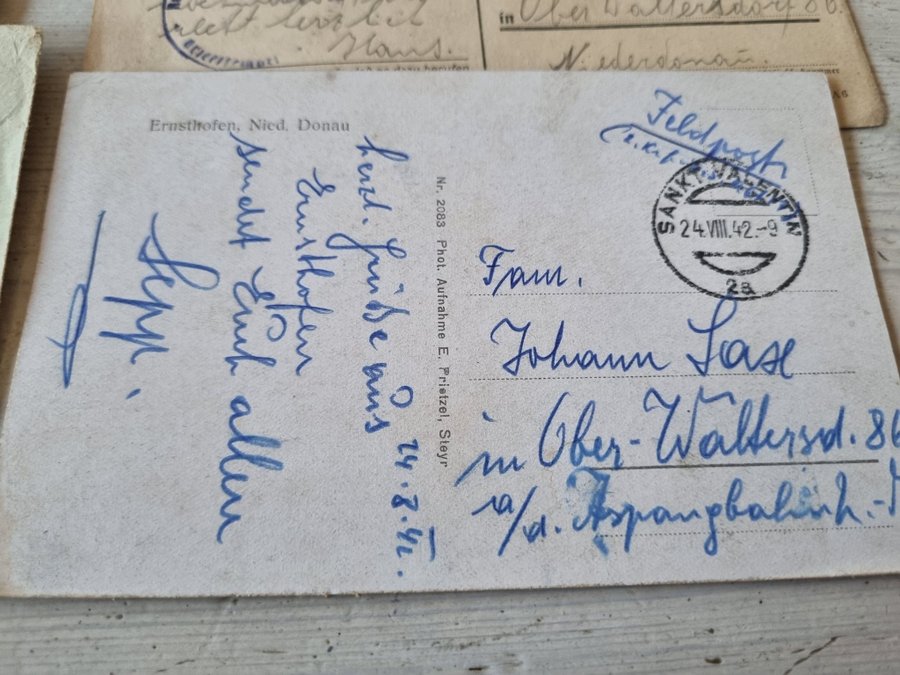 herzlich
Hans.
in Ober Waltersdorf 86.
Niederdonau.
Ernsthofen, Nied. Donau
24.8.42.
herzl. Grüße aus
Ernsthofen
sendet Euch allen
Sepp.
Nr. 2083 Phot. Aufnahme E. Prietzel, Steyr
Feldpost
SANKT VALENTIN
24.VIII.42.-9
2a
Fam.
Johann Sax
in Ober-Waltersd. 86
a/d. Aspangbahn